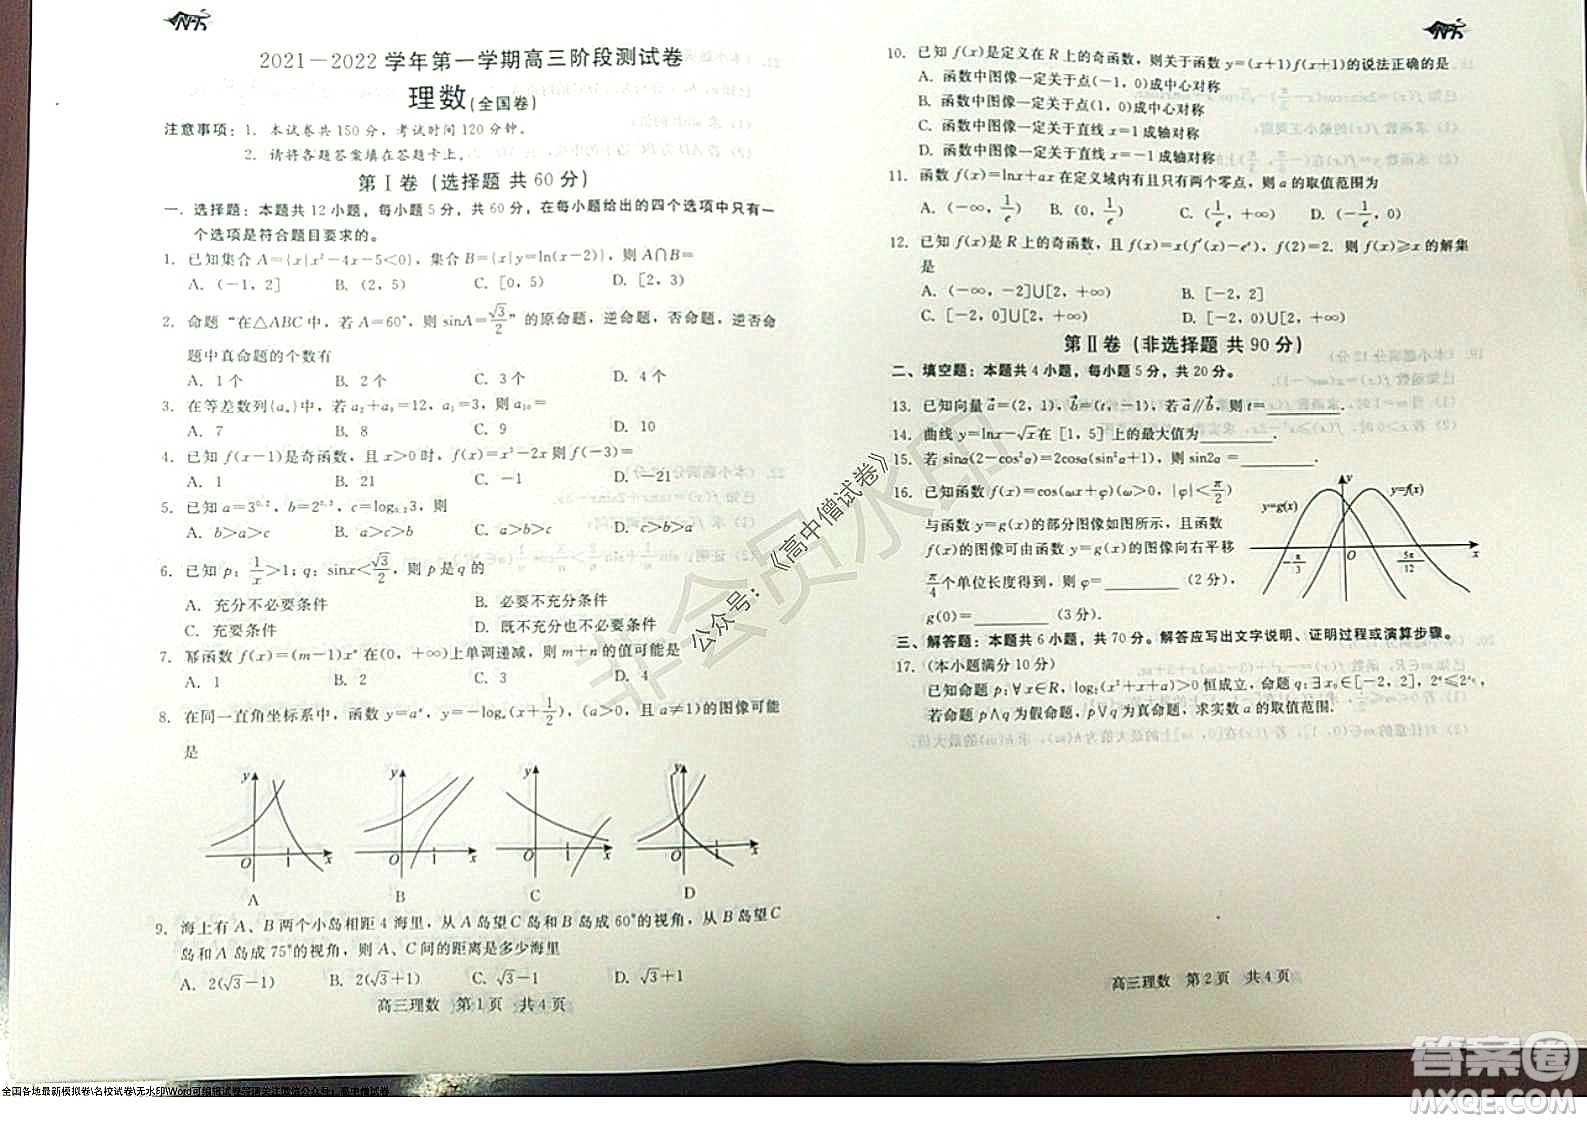 2021－2022学年第一学期高三阶段测试卷
理数(全国卷)
注意事项：1. 本试卷共150分，考试时间120分钟。
2. 请将各题答案填在答题卡上。
第Ⅰ卷（选择题 共60分）
一. 选择题：本题共12小题，每小题5分，共60分，在每小题给出的四个选项中只有一
个选项是符合题目要求的。
1. 已知集合 A={x|x²-4x-5<0}，集合 B={x|y=ln(x-2)}，则 A∩B=
A. (-1, 2] B. (2, 5) C. [0, 5) D. [2, 3)
2. 命题“在△ABC中，若 A=60°，则 sinA=√3/2”的原命题，逆命题，否命题，逆否命
题中真命题的个数有
A. 1个 B. 2个 C. 3个 D. 4个
3. 在等差数列{aₙ}中，若 a₂+a₉=12，a₁=3，则 a₁₀=
A. 7 B. 8 C. 9 D. 10
4. 已知 f(x-1)是奇函数，且 x>0时，f(x)=x³-2x则 f(-3)=
A. 1 B. 21 C. -1 D. -21
5. 已知 a=3^0.2，b=2^0.3，c=log₀.₂3，则
A. b>a>c B. a>b>c C. a>c>b D. c>b>a
6. 已知 p：1/x>1；q：sinx<√3/2，则 p是q的
A. 充分不必要条件 B. 必要不充分条件
C. 充要条件 D. 既不充分也不必要条件
7. 幂函数 f(x)=(m-1)xⁿ在(0，+∞)上单调递减，则 m+n的值可能是
A. 1 B. 2 C. 3 D. 4
8. 在同一直角坐标系中，函数 y=aˣ，y=-logₐ(x+1/2)，(a>0，且 a≠1)的图像可能
是
y y y y
O 1 x O 1 x O 1 x O 1 x
A B C D
9. 海上有 A、B两个小岛相距4海里，从A岛望C岛和B岛成60°的视角，从B岛望C
岛和A岛成75°的视角，则A、C间的距离是多少海里
A. 2(√3-1) B. 2(√3+1) C. √3-1 D. √3+1
高三理数 第1页 共4页
10. 已知 f(x)是定义在R上的奇函数，则关于函数 y=(x+1)f(x+1)的说法正确的是
A. 函数中图像一定关于点(-1, 0)成中心对称
B. 函数中图像一定关于点(1, 0)成中心对称
C. 函数中图像一定关于直线 x=1成轴对称
D. 函数中图像一定关于直线 x=-1成轴对称
11. 函数 f(x)=lnx+ax在定义域内有且只有两个零点，则a的取值范围为
A. (-∞, 1/e) B. (0, 1/e) C. (1/e, +∞) D. (-1/e, 0)
12. 已知 f(x)是R上的奇函数，且 f(x)=x(f'(x)-eˣ)，f(2)=2. 则 f(x)≥x的解集
是
A. (-∞, -2]∪[2, +∞) B. [-2, 2]
C. [-2, 0]∪[2, +∞) D. [-2, 0)∪[2, +∞)
第Ⅱ卷（非选择题 共90分）
二、填空题：本题共4小题，每小题5分，共20分。
13. 已知向量a=(2, 1)，b=(t, -1)，若 a∥b，则t=________.
14. 曲线 y=lnx-√x在 [1, 5]上的最大值为________.
15. 若 sinα(2-cos²α)=2cosα(sin²α+1)，则 sin2α=________.
16. 已知函数 f(x)=cos(ωx+φ)(ω>0，|φ|<π/2)
与函数 y=g(x)的部分图像如图所示，且函数
f(x)的图像可由函数 y=g(x)的图像向右平移
π/4个单位长度得到，则φ=________（2分），
g(0)=________（3分）.
y=g(x) y y=f(x)
-π/3 O 5π/12 x
三、解答题：本题共6小题，共70分。解答应写出文字说明、证明过程或演算步骤。
17. (本小题满分10分)
已知命题 p：∀x∈R，log₂(x²+x+a)>0恒成立，命题 q：∃x₀∈[-2, 2]，2ᵃ≤2ˣ⁰，
若命题 p∧q为假命题，p∨q为真命题，求实数a的取值范围.
高三理数 第2页 共4页
非会员水印
公众号：《高中僧试卷》
全国各地最新模拟卷\名校试卷\无水印\Word可编辑试卷等请关注微信公众号：高中僧试卷
答案圈
MXQE.COM